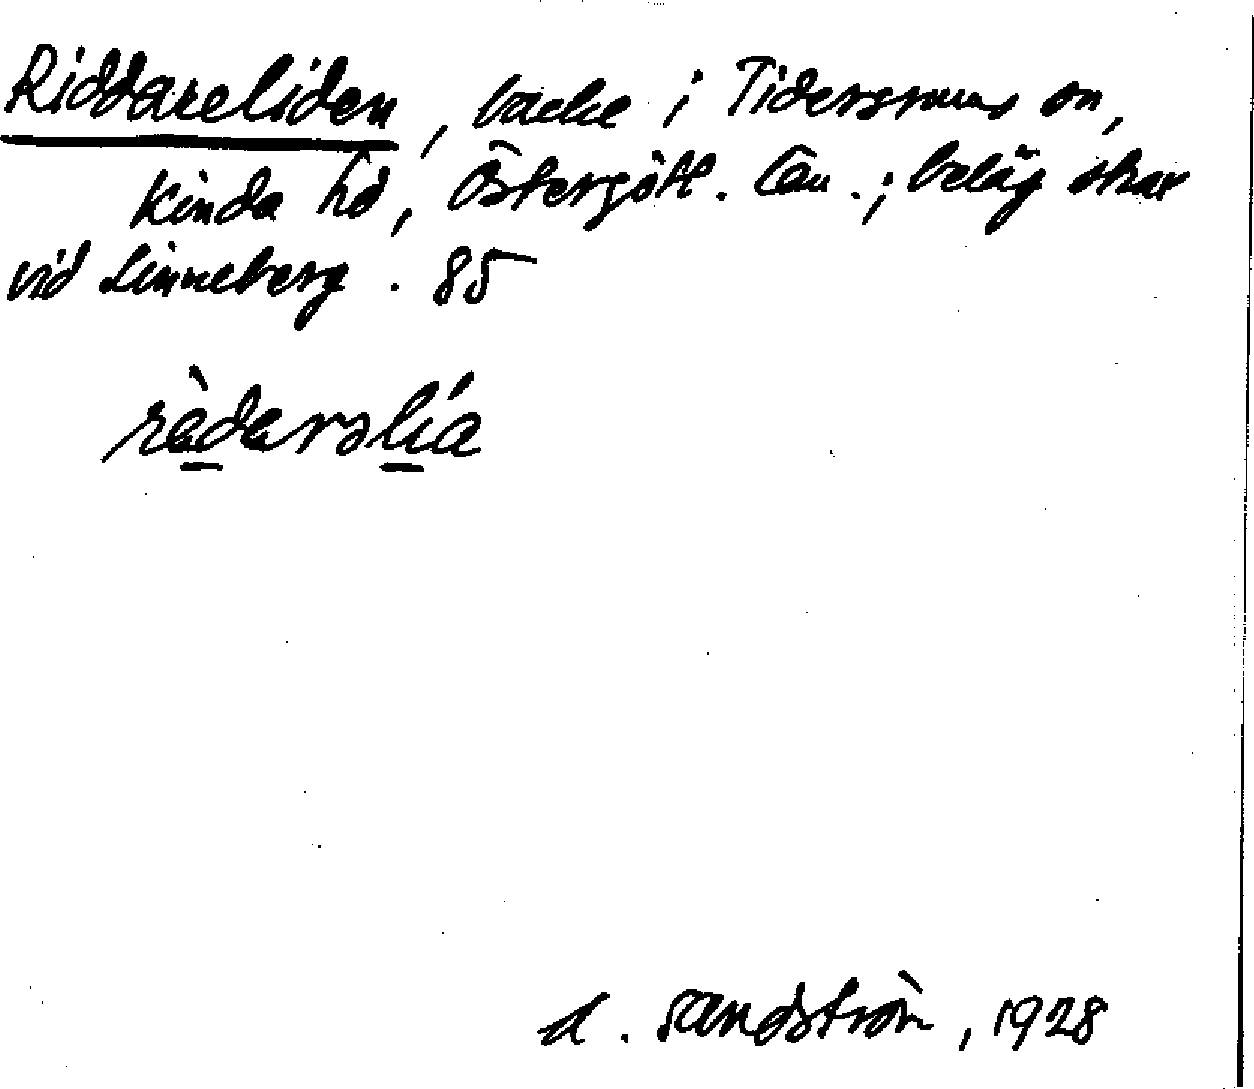 Riddareliden, backe i Tidersrums sn,
Kinda hd, Östergötl. län.; beläg strax
vid Linneberg. 85
rèdarəlía
A. Sandström, 1928